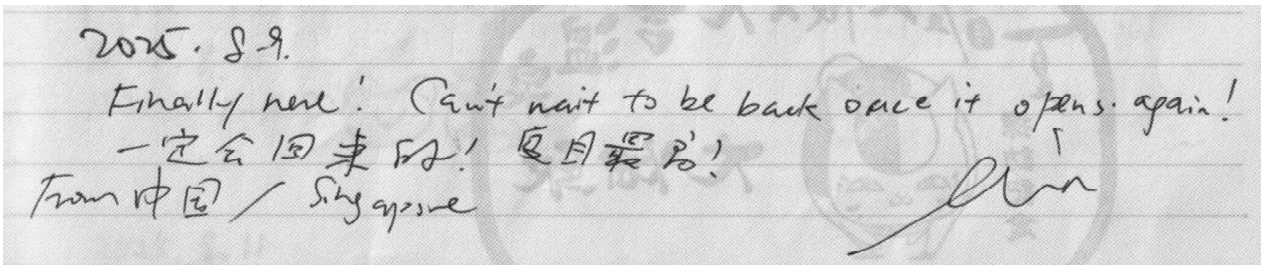 2025. 8.9.
Finally here! Can't wait to be back once it opens again!
一定会回来的! 夏目
From 中国 / Singapore